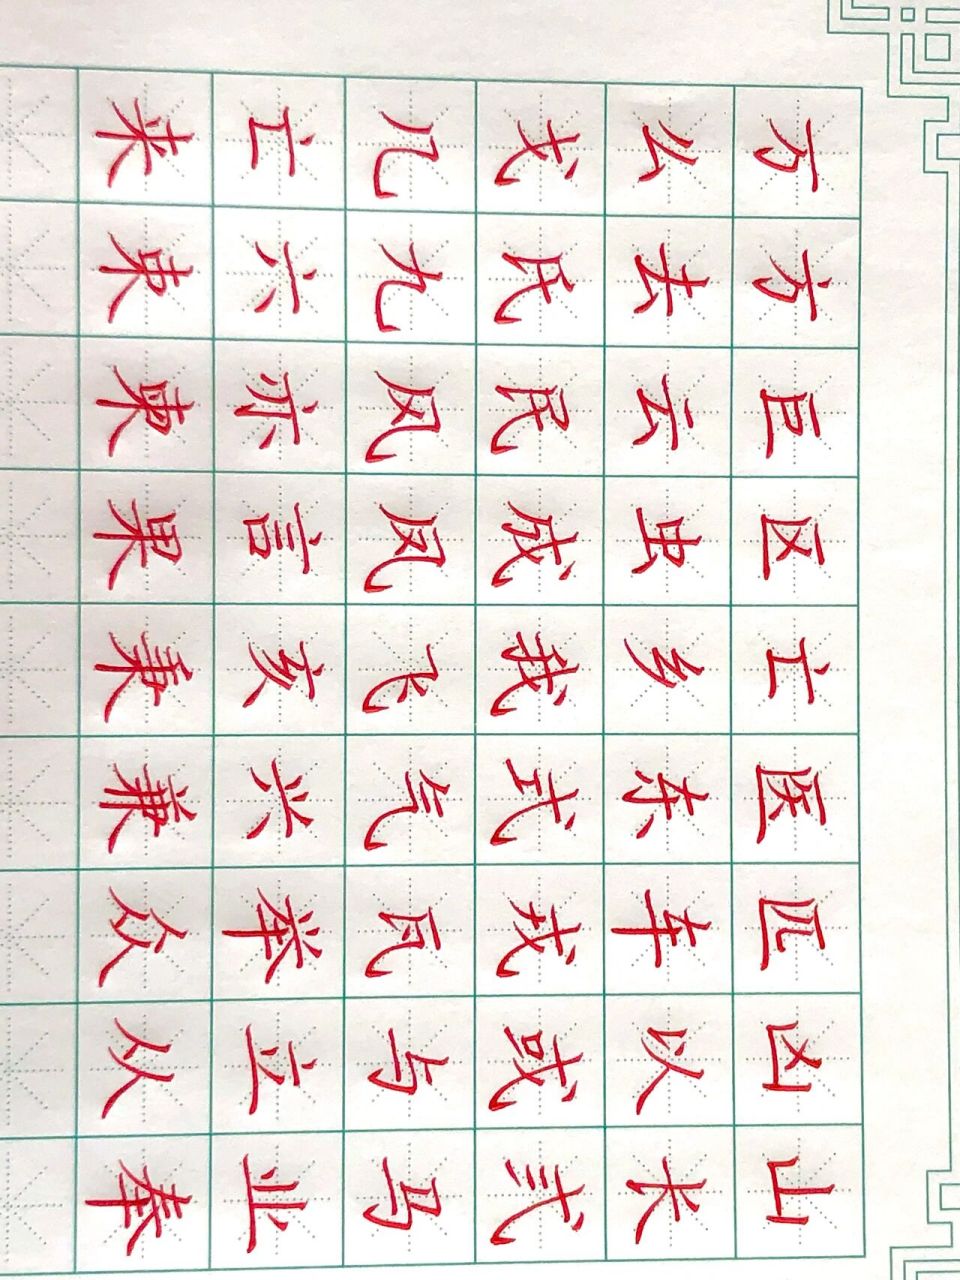 万方巨区亡医匹凶山
么去云虫乡东车以长
戈氏民成我式戎或弍
几九风凤飞气瓦与马
亡六亦言亥兴举立业
来束東果秉兼众从奉